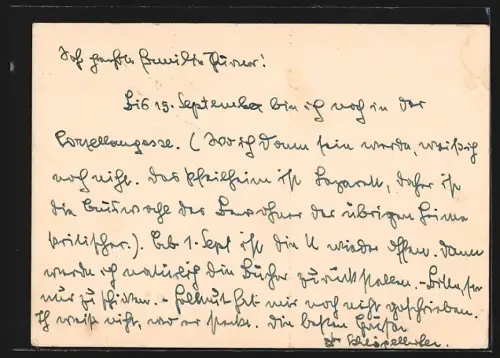 Sehr geehrte Familie Thurner!
Bis 15. September bin ich noch in der
Porzellangasse. (Wo ich dann sein werde, weiß ich
noch nicht. Das Pfeilheim ist Lazarett, daher ist
die Auswahl der Bewohner der übrigen Heime
kritischer.). Ab 1. Sept ist die U wieder offen. Dann
werde ich natürlich die Bücher zurückstellen. - Bitte
nur zu schicken. - Hellmut hat mir noch nicht geschrieben.
Ich weiß nicht, wo er steckt. Die besten Grüße